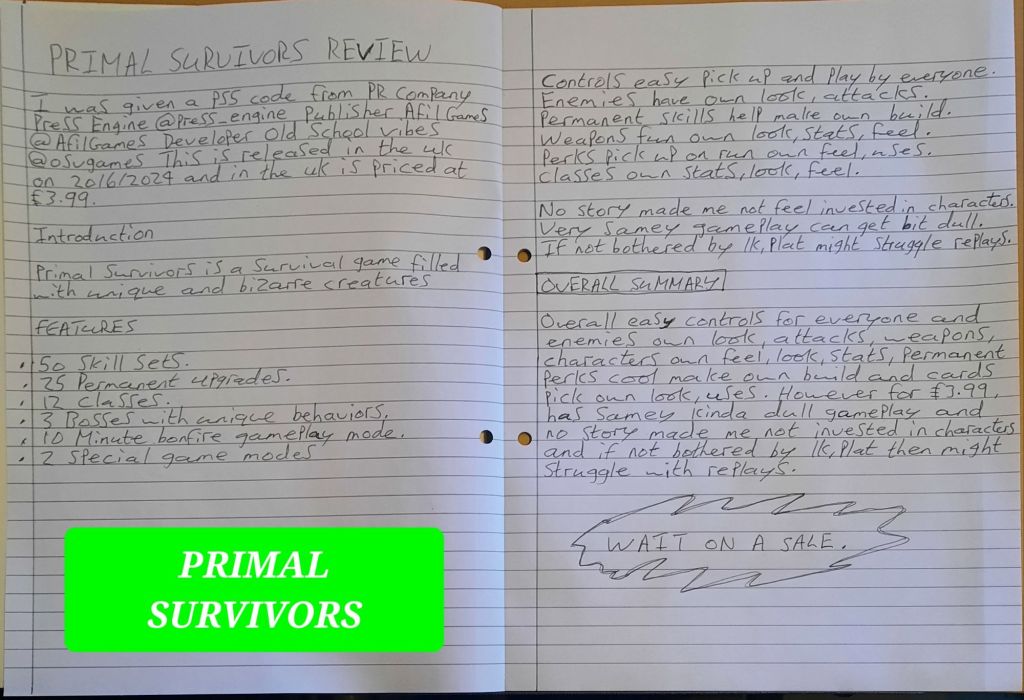 PRIMAL SURVIVORS REVIEW
I was given a PS5 code from PR Company
Press Engine @Press_engine Publisher Afil Games
@AfilGames Developer Old School Vibes
@osvgames This is released in the uk
on 20/6/2024 and in the uk is priced at
£3.99.
Introduction
Primal Survivors is a Survival game filled
with unique and bizarre creatures
FEATURES
• 50 Skill Sets.
• 25 Permanent upgrades.
• 12 Classes.
• 3 Bosses with unique behaviors.
• 10 Minute bonfire gameplay mode.
• 2 Special game modes
PRIMAL
SURVIVORS
Controls easy pick up and play by everyone.
Enemies have own look, attacks.
Permanent skills help make own build.
Weapons fun own look, stats, feel.
Perks pick up on run own feel, uses.
Classes own stats, look, feel.
No story made me not feel invested in characters.
Very samey gameplay can get bit dull.
If not bothered by 1k, Plat might struggle replays.
OVERALL SUMMARY
Overall easy controls for everyone and
enemies own look, attacks, weapons,
characters own feel, look, stats, Permanent
Perks cool make own build and cards
pick own look, uses. However for £3.99,
has samey kinda dull gameplay and
no story made me not invested in characters
and if not bothered by 1k, Plat then might
struggle with replays.
WAIT ON A SALE.